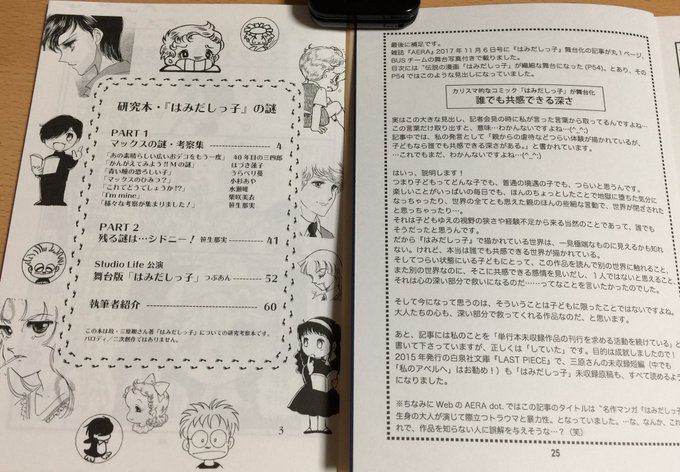 研究本・『はみだしっ子』の謎
PART 1
マックスの謎・考察集 4
「あの素晴らしい広いおデコをもう一度」 40年目の三四郎
「かんがえてみよう!!Mの謎」 はづき蓮子
「青い瞳の恐ろしい子」 うらべり蔓
「マックスのひみつ?」 水杉あや
「これでどうでしょうか!?」 水瀬唯
「I'm mine」 柴咲美衣
「様々な考察が集まりました!」 笹生那実
PART 2
残る謎は…シドニー! 笹生那実 41
Studio Life 公演
舞台版「はみだしっ子」 つぶあん 52
執筆者紹介 60
この本は故・三原順さん著『はみだしっ子』についての研究考察本です。
パロディ/二次創作ではありません。
3
最後に補足です。
雑誌『AERA』2017年11月6日号に『はみだしっ子』舞台化の記事が丸1ページ、
BUSチームの舞台写真付きで載りました。
目次には“伝説の漫画「はみだしっ子」が繊細な舞台になった(P54)、とあり、その
P54ではこのような見出しになっていました。
カリスマ的なコミック「はみだしっ子」が舞台化
誰でも共感できる深さ
実はこの大きな見出し、記者会見の時に私が言った言葉から取ってるんですね…
この言葉だけ取り出すと、意味…わかんないですよね…(^_^;)
記事中では、私の発言として「親からの虐待などつらい体験が描かれているが、
子どもなら誰でも共感できる深さがある。」と書かれています。
…これでもまだ、わかんないですよね…(^_^;)
はいっ、説明します!
つまり子どもってどんな子でも、普通の境遇の子でも、つらいと思うんです。
楽しいことがいっぱいの毎日でも、ほんのちょっとしたことで地獄に堕ちた気分に
なっちゃったり、世界の全てとも思えた親のほんの些細な言動で、世界が閉ざされた
と思っちゃったり…。
それは子どもゆえの視野の狭さや経験不足から来る当然のことであって、誰でも
そうだったと思うんです。
だから『はみだしっ子』で描かれている世界は、一見極端なものに見えるかも知れ
ない。けれど、本当は誰でも共感できる世界が描かれている。
そしてつらい状態にいる子どもにとって、この作品を読んで別の世界に触れること、
また別の世界なのに、そこに共感できる感情を見いだし、1人ではないと思えること、
それは心の深い部分で救いになるのだ…ってなことを言いたかったのでした。
そして今になって思うのは、そういうことは子どもに限ったことではないですよね。
大人たちの心も、深い部分で救ってくれる作品なのだ、と思います。
あと、記事には私のことを「単行本未収録作品の刊行を求める活動を続けている」と
書いて下さっていますが、正しくは「していた」です。目的は成就しましたので!
2015年発行の白泉社文庫『LAST PIECE』で、三原さんの未収録短編(中でも
「私のアベルへ」はお勧め!)も「はみだしっ子」未収録原稿も、すべて読めるように
になりました。
※ちなみにWebのAERA dot.ではこの記事のタイトルは“名作マンガ「はみだしっ子」
生身の大人が演じて際立つトラウマと暴力性。となっていました。…な、なんか、これ
れで、作品を知らない人に誤解を与えそうな…?(笑)
25